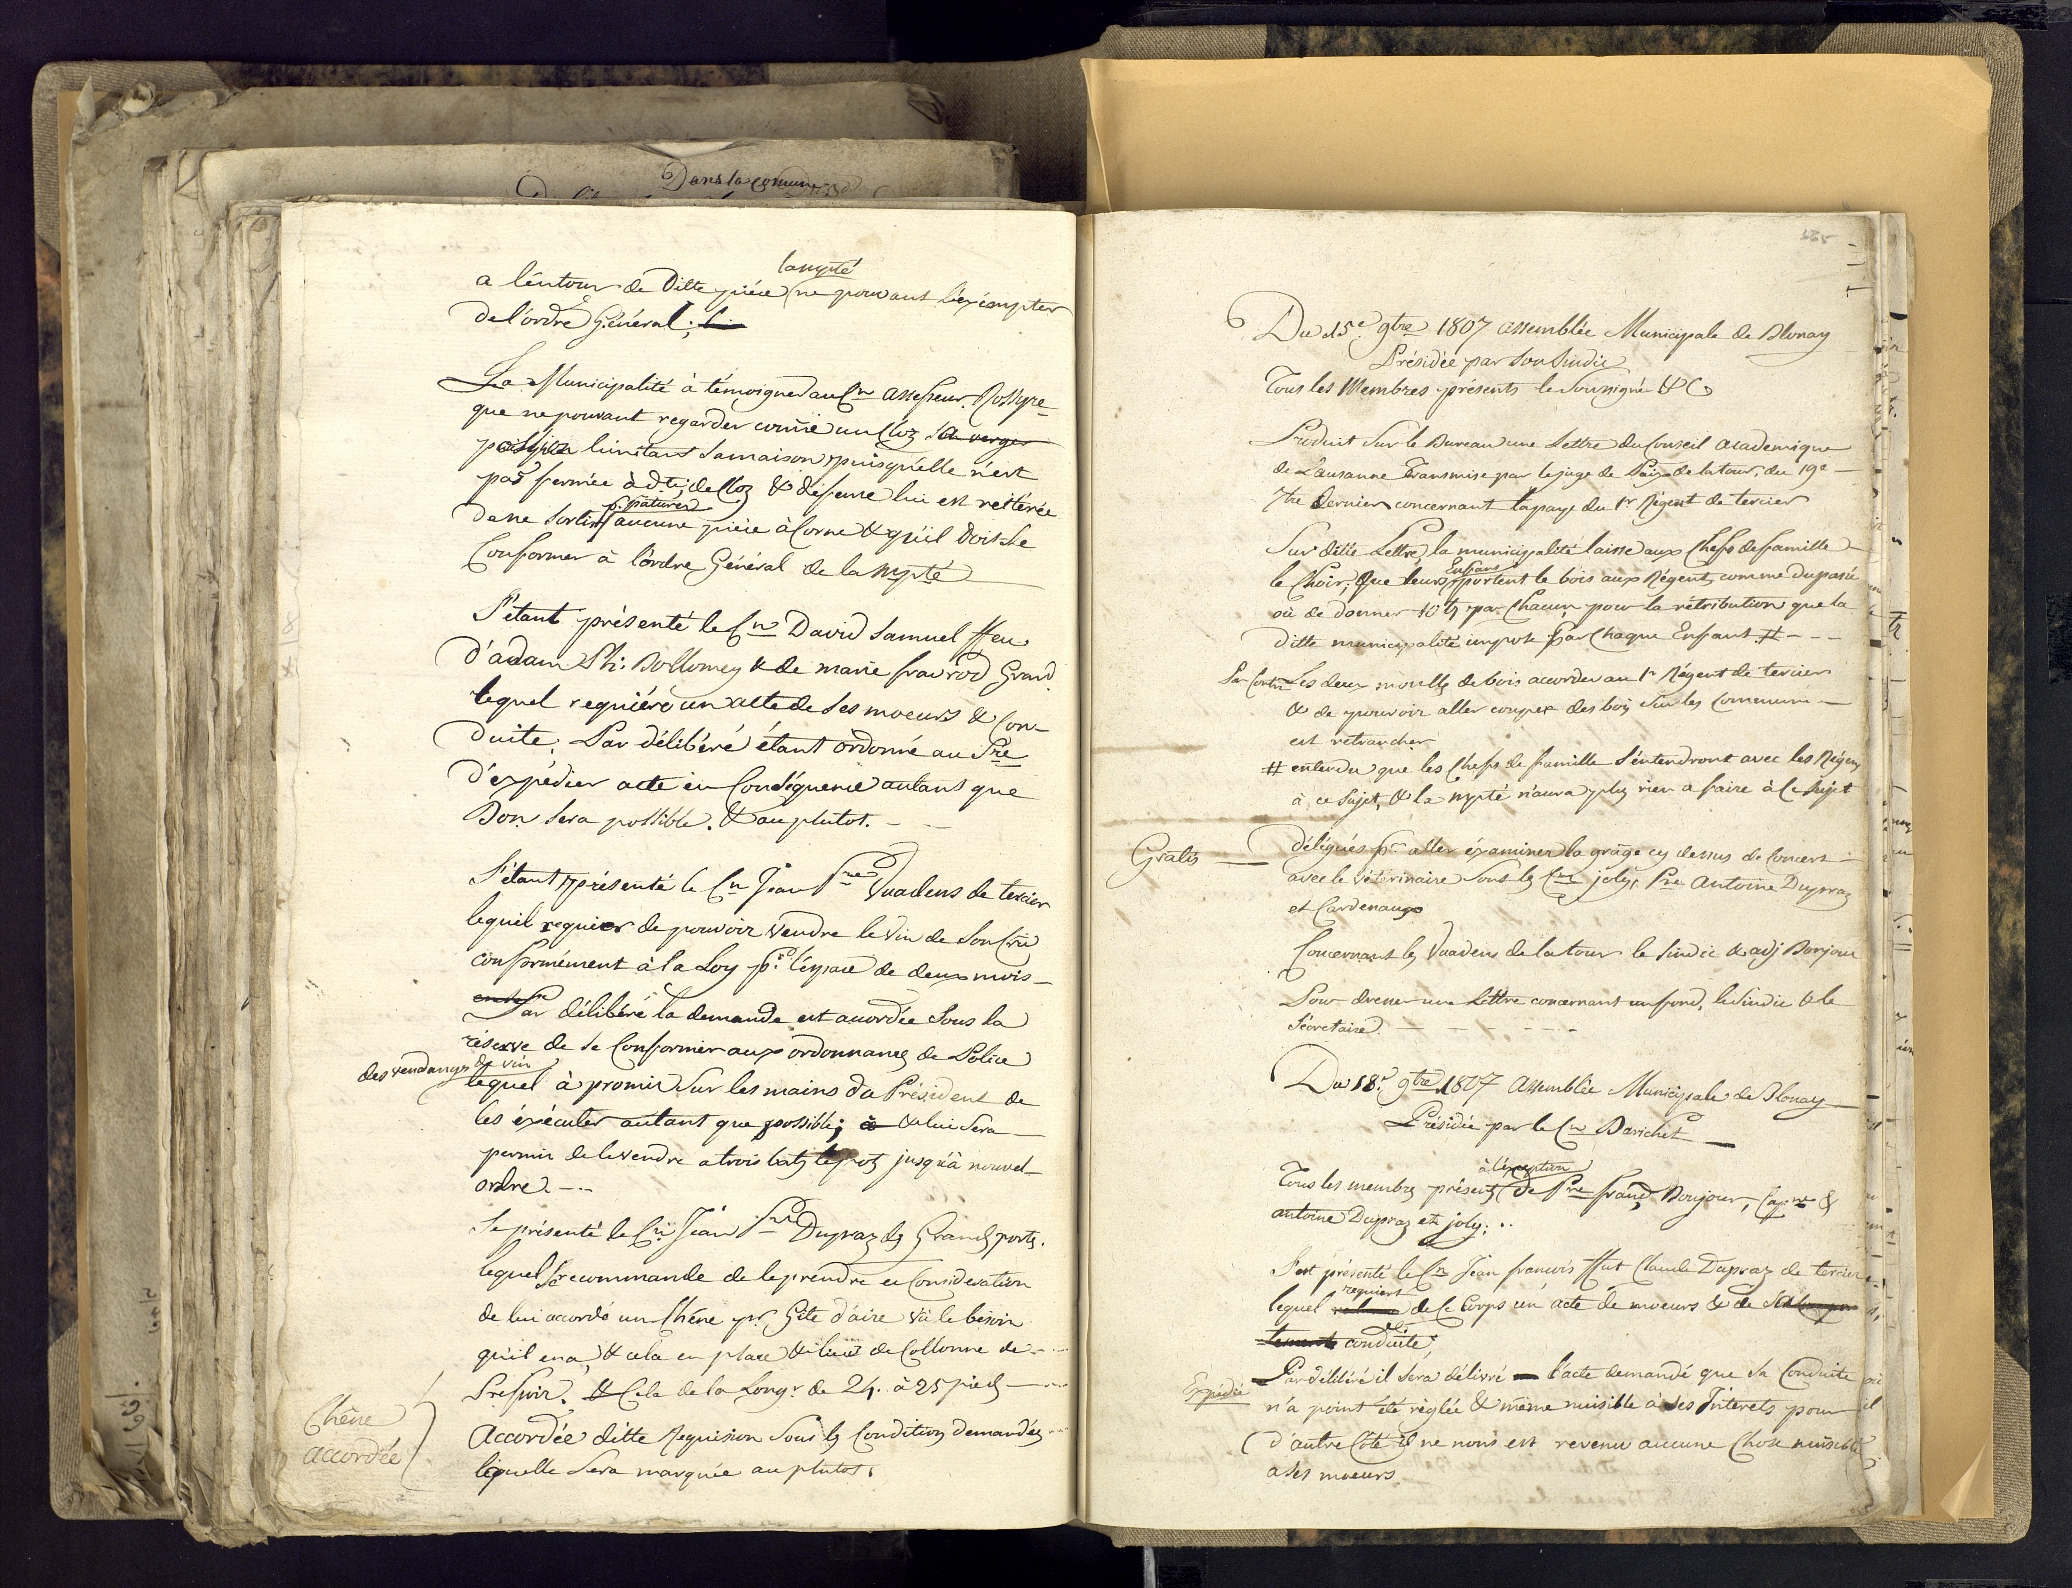 Dans la comune
la mpté
a lentour de ditte pièce ne pouvant l'exémpter
de l'ordre Général;
La Municipalité à témoigner au Cn assesseur
que ne pouvant regarder comme un Cloz sa verger
limitant sa maison puisqu'elle n'est
pas fermée à dte de Cloz & défense lui est réïtérée
p. paturer
de ne sortir aucune pièce à Corne & qu'il doit se
Conformer à l'ordre Général de la Mpté
S'étant présenté le Cn David Samuel ffeu
d'adam Ph: Dollomey & de marie fra rod Grand
lequel requière un acte de ses moeurs & Con-
duite; Par délibéré étant ordonné au Sre
d'expédier acte en Conséquence autant que
Bon sera possible. & au plutot.
S'étant présenté le Cn Jean Vuadens de tercier
lequel requier de pouvoir vendre le vin de son Crû
conformément à la Loy pr l'éspace de deux mois
Par délibéré la demande est acordée sous la
réserve de se Conformer aux ordonnances de Police
des vendanges de vin
lequel à promis sur les mains du Président de
les éxécuter autant que possible; à & lui sera
permis de le vendre a trois batz le pot jusqu'à nouvel
ordre.
Se présenté le Cn Jéan Dupraz des Grands ports.
lequel se recommande de le prendre en Consideration
de lui accordé un Chéne pr Gite d'aire vû le bésoin
qu'il en a, & cela en place & lieu de Collonne de
Presoir. & Cela de la Longr de 24. à 25 pieds
Chêne
accordée
Accordée ditte Requision sous les Condition demandés
laquelle sera marquée au plutot.
Du 15e 9bre 1807 assemblée Municipale de Blonay
Présidée par son Sindic
Tous les Membres présents le Sousigné &C
Produit sur le Bureau une Lettre du Conseil academique
de Lausanne transmise par le juge de Paix de la tour, du 19e
7bre dernier concernant la paye du 1r Régent de tercier
Sur ditte Lettre, la municipalité laisse aux Chefs de famille
Enfans
le Choix; Que leurs portent le bois aux Régent comme du passé
où de donner 10 bz par Chacun pour la rétribution que la
ditte municipalité impose par Chaque Enfant #
Par Contre Les deux moulles de bois accorder au 1r Régent de tercier
& de pouvoir aller couper des bois sur les Commun
est retrancher
# entendu que les Chefs de famille s'éntendront avec les Régens
à ce sujet, & la mpté n'aura plus rien a faire à Ce sujet
Gratis
délégués pr aller éxaminer la grange cy dessus de Concert
avec le vétérinaire Sont les Cns joly, Pre Antoine Dupraz
et Cardenaux
Concernant les Vuadens de la tour le Sindic & adj Bonjour
Pour dresser une Lettre concernant un fond, le Sindic & le
Sécretaire.
Du 18e 9bre 1807 Assemblée Municipale de Blonay
Présidée par le Cn Barichet
à l'exeption
Tous les membres présents de Pre frans Bonjour, &
antoine Dupraz et joly;
S'est présenté le Cn Jean francois ffut Claude Dupraz de tercier
requiert
lequel de Ce Corps un acte de moeurs & de
conduite;
Expédié
Par délibéré il sera délivré l'acte demandé que sa Conduite
n'a point été réglée & même nuisible à ses Intérets pour
d'autre Côté Il ne nous est revenu aucune Chose nuisible
a ses moeurs